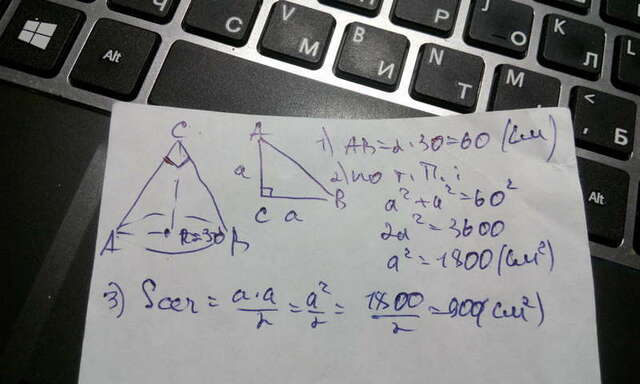 Alt
Ч
С
V М
B И
N Т
M
Р
J О
К
Л
< , Б
Alt
C
A
R=30
B
A
a
C a
B
1) AB=2·30=60 (см)
2) по т. П.:
a²+a²=60²
2a²=3600
a²=1800 (см²)
3) Sсеч = a·a/2 = a²/2 = 1800/2 = 900(см²)